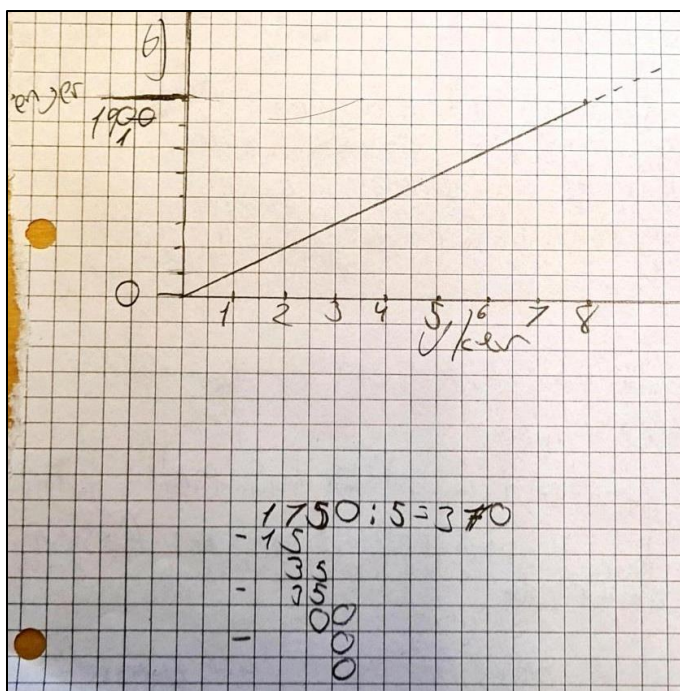 6)
enger
1900
1
0
1 2 3 4 5 6 7 8
Uker
1750:5=370
- 15
35
- 35
00
- 0
0